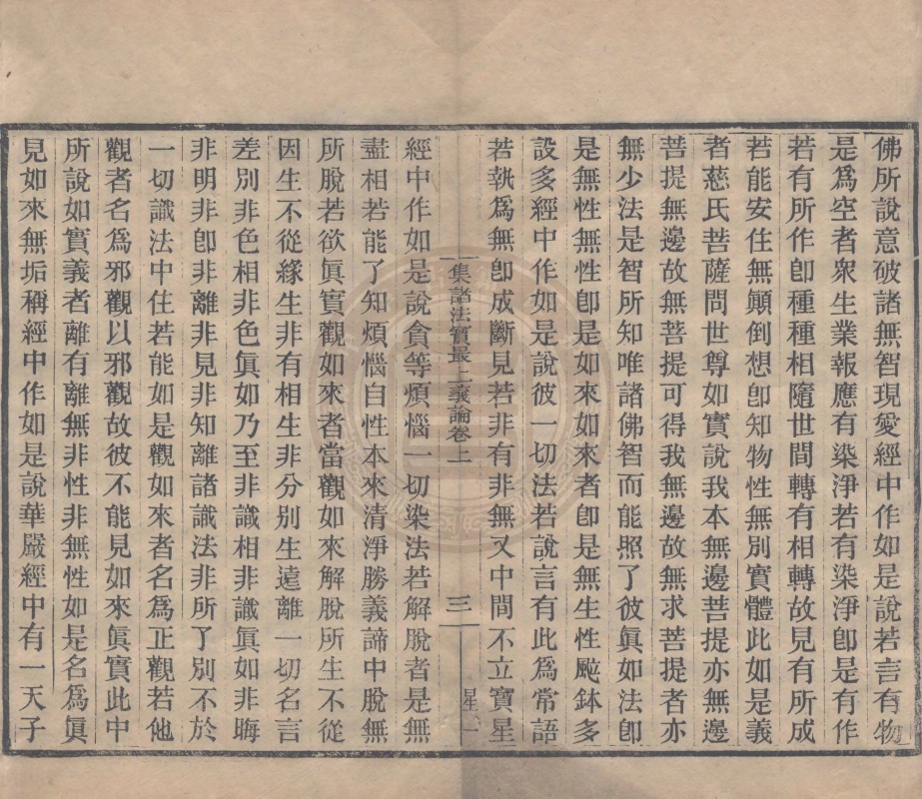 佛所說意破諸無智現愛經中作如是說若言有物
是爲空者衆生業報應有染淨若有染淨卽是有作
若有所作卽種種相隨世間轉有相轉故見有所成
若能安住無顛倒想卽知物性無別實體此如是義
者慈氏菩薩問世尊如實說我本無邊菩提亦無邊
菩提無邊故無菩提可得我無邊故無求菩提者亦
無少法是智所知唯諸佛智而能照了彼眞如法卽
是無性無性卽是如來如來者卽是無生性颰鉢多
設多經中作如是說彼一切法若說言有此爲常語
若執爲無卽成斷見若非有非無又中間不立寶星
集諸法寶最上義論卷上
三
星一
經中作如是說貪等煩惱一切染法若解脫者是無
盡相若能了知煩惱自性本來清淨勝義諦中脫無
所脫若欲眞實觀如來者當觀如來解脫所生不從
因生不從緣生非有相生非分別生遠離一切名言
差別非色相非色眞如乃至非識相非識眞如非晦
非明非卽非離非見非知離諸識法非所了別不於
一切識法中住若能如是觀如來者名爲正觀若他
觀者名爲邪觀以邪觀故彼不能見如來眞實此中
所說如實義者離有離無非性非無性如是名爲眞
見如來無垢稱經中作如是說華嚴經中有一天子